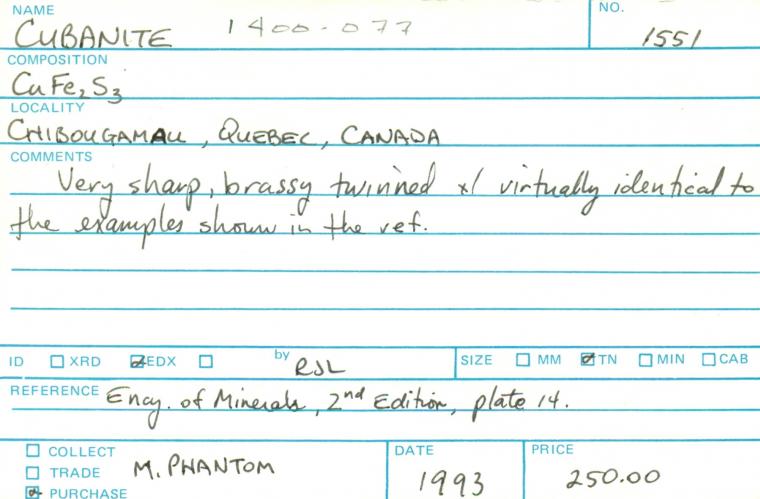 NAME NO.
CUBANITE 1400-077 1551
COMPOSITION
CuFe2S3
LOCALITY
CHIBOUGAMAU, QUEBEC, CANADA
COMMENTS
Very sharp, brassy twinned xl virtually identical to
the examples shown in the ref.
ID XRD EDX by RJL SIZE MM TN MIN CAB
REFERENCE Ency. of Minerals, 2nd Edition, plate 14.
COLLECT DATE PRICE
TRADE M. PHANTOM 1993 250.00
PURCHASE